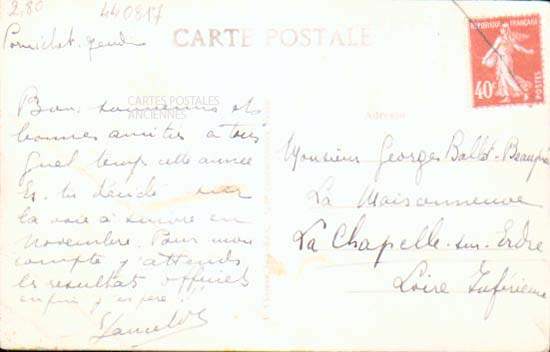 2,80
440817
Pornichet. jeudi
CARTE POSTALE
REPUBLIQUE FRANÇAISE
40c
POSTES
CARTES POSTALES
ANCIENNES
Adresse
Bons souvenirs et
bonnes amitiés à tous
Quel temps cette année
Es-tu décidé sur
la voie à suivre en
Novembre. Pour mon
compte j'attends
les résultats officiels
enfin j'espère !
Monsieur Georges Ballot-Beaupré
La Maisonneuve
La Chapelle-sur-Erdre
Loire Inférieure